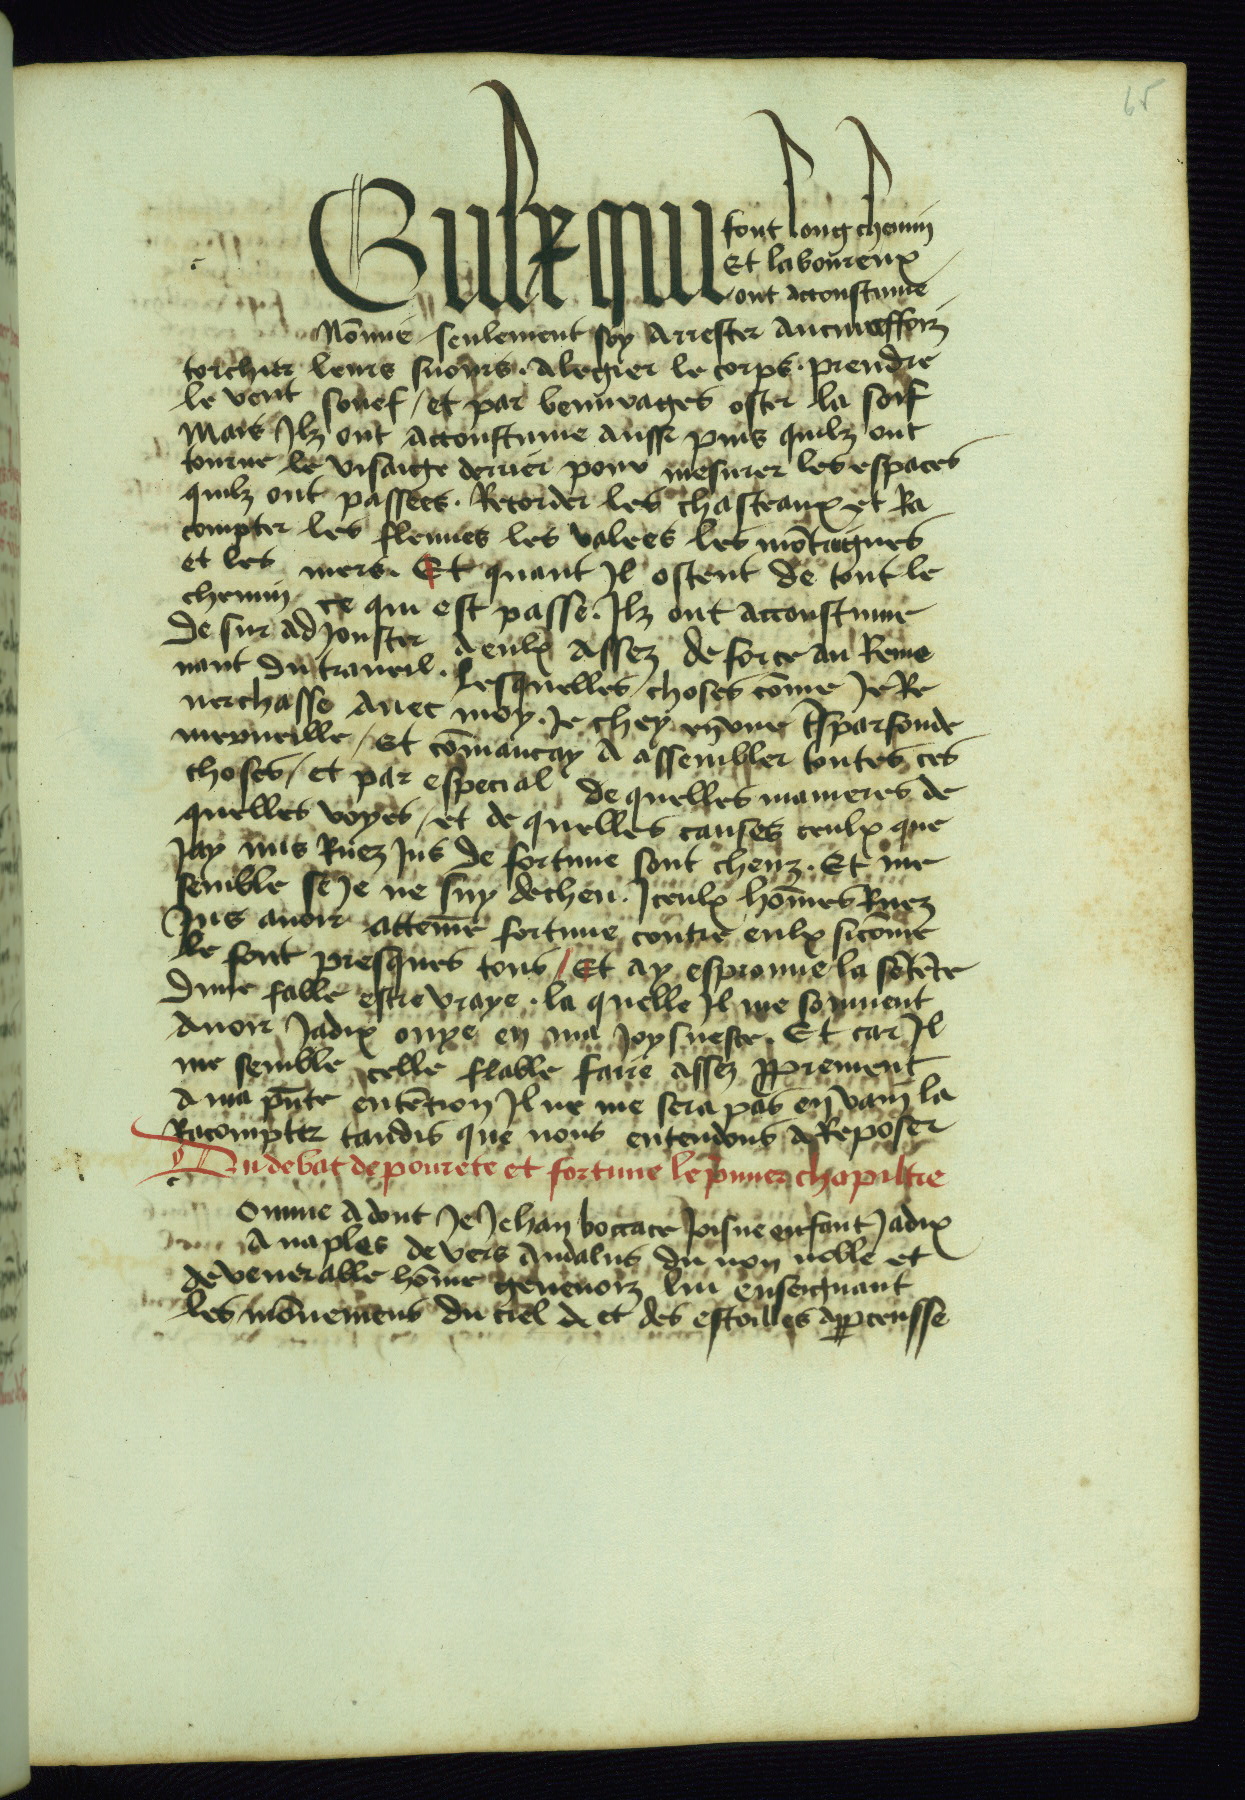 65
Culx qui font long chemin
Et laboureux
ont acconstume
Nōmie seulement soy arrester aucuneffoiz
torchier leurs sueurs. alegier le corps. prendre
le vent souef / et par beuurages oster la soif
Mais Ilz ont acconstume aussi puis quilz ont
tourne le visaige derrier pour mesurer les espaces
quilz ont passees. Recorder les chasteaux et Ra
compter les fleuues les valees les mōtaignes
et les mers. Et quant Il ostent de tout le
chemin ce qui est passe. Ilz ont acconstume
de sur adiouster a eulx assez de force au Reme
nant du traueil. Lesquelles choses cōme Je Re
uerchasse auec moy. Je chey en vne tsparfonde
merueille / Et cōmancay a assembler toutes ces
choses / et par especial de quelles manieres de
quelles voyes / et de quelles causes ceulx que
Jay mis Ruez Jus de fortune sont cheuz. Et me
semble se Je ne suy decheu. Iceulx hōmes Ruez
Jus auoir attēme fortune contre eulx sicōme
le font presques tous / Et ay esprouue la sētēce
dune fable estre vraye. la quelle Il me souuient
auoir Jadix ouye en ma Joysnesce. Et car Il
me semble celle flable faire assez pprement
a ma pn̄te entēcion Il ne me sera pas en vain la
Racompter tandis que nous entendons a Reposer
Du debat de pourete et fortune le pͥmier chapiltre
c
Omme adont Je Jehan boccace Joisne enfant Jadix
a naples deuers Andalus du non noble et
de venerable hōme geneuoiz lui enseignant
les mōuemens du ciel a et des estoilles appceusse